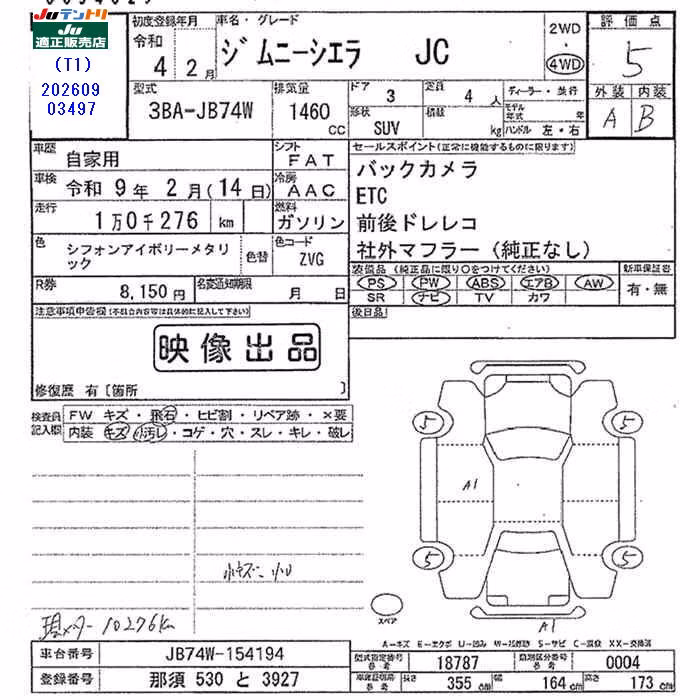 JUテントリ
JU
適正販売店
(T1)
202609
03497
初度登録年月
令和
4 2月
車名・グレード
ジムニーシエラ JC
2WD
・
4WD
評価点
5
外装 内装
A B
型式
3BA-JB74W
排気量
1460
CC
ドア
3
定員
4 人
形状
SUV
積載
kg
ディーラー・並行
モデル年式 年
ハンドル 左・右
車歴
自家用
シフト
FAT
車検
令和 9年 2月(14日)
冷房
AAC
走行
1万0千276 km
燃料
ガソリン
色
シフォンアイボリーメタリック
色替
色コード
ZVG
R券
8,150円
名変通知期限
月 日
セールスポイント(正常に機能するものに限ります)
バックカメラ
ETC
前後ドレレコ
社外マフラー(純正なし)
装備品(純正品に限り○をつけてください)
PS PW ABS エアB AW
SR ナビ TV カワ
新車保証書
有・無
後日品
注意事項申告欄(不具合内容等は具体的に記入して下さい)
映像出品
修復歴 有〔箇所 〕
検査員
記入欄
FW キズ・飛石・ヒビ割・リペア跡・×要
内装 キズ・汚レ・コゲ・穴・スレ・キレ・破レ
小キズ、小凹
現メーター 10276km
5
5
A1
5
5
スペア
A1
A-キズ E-エクボ U-凹み W-波 S-サビ C-腐食 XX-交換済
車台番号
JB74W-154194
登録番号
那須 530 と 3927
型式指定番号
参考
18787
類別区分番号
参考
0004
車庫証明用
参考
長さ
355 cm
幅
164 cm
高さ
173 cm